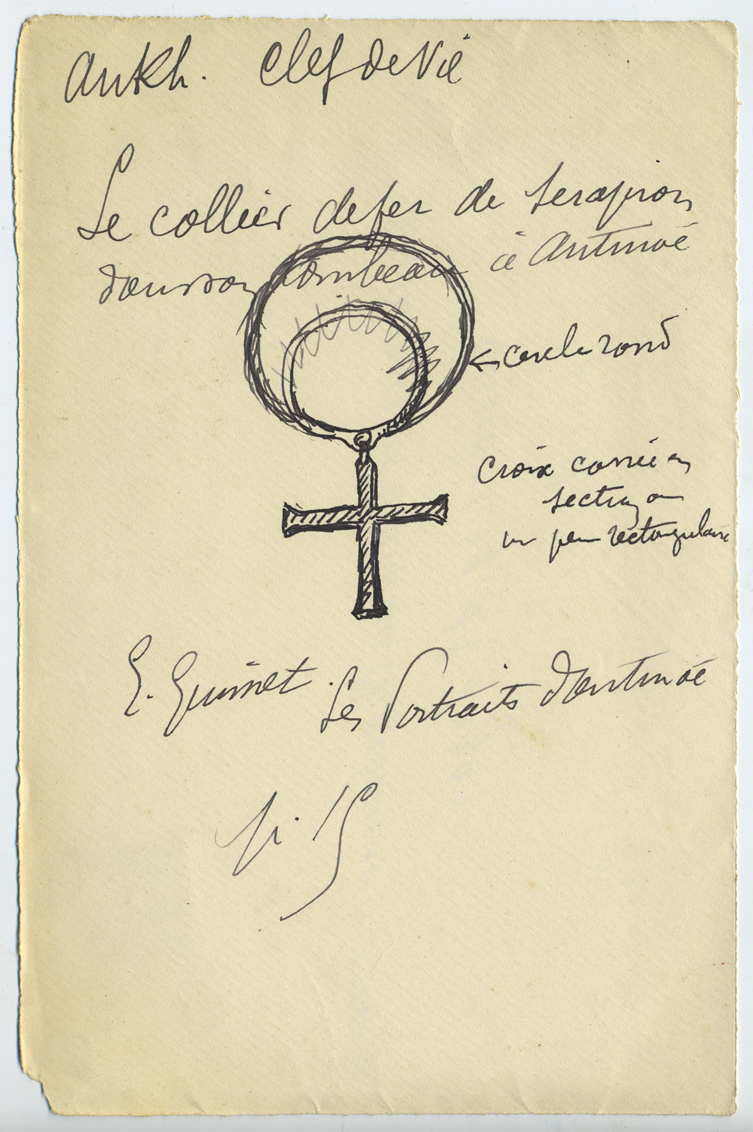 Ankh. Clef de Vie
Le collier de fer de Serapion
dans son tombeau à Antinoé
cercle rond
Croix carrée en
section ou
un peu rectangulaire
E. Guimet. Les Portraits d'Antinoé
p. 19